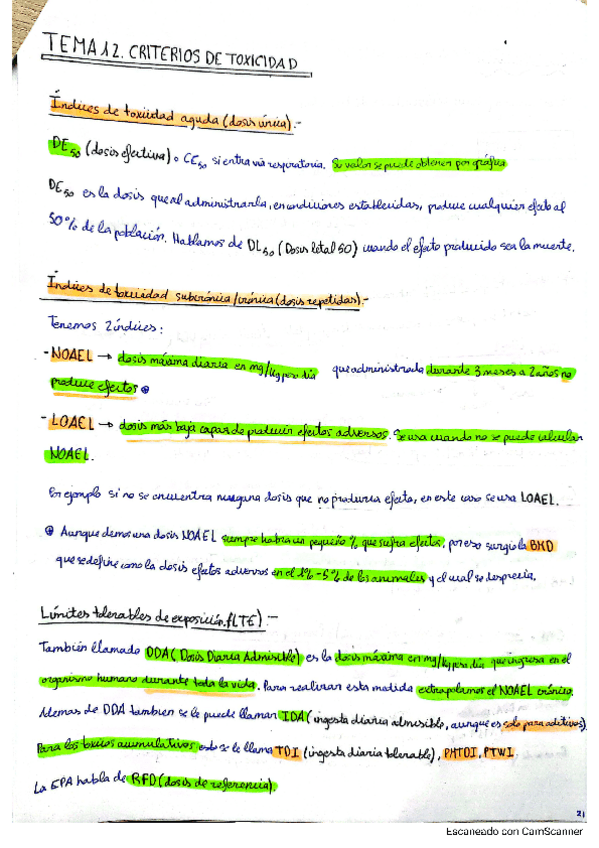 TEMA 12. CRITERIOS DE TOXICIDAD
Índices de toxicidad aguda (dosis única).-
DE50 (dosis efectiva) o CE50 si entra vía respiratoria. Su valor se puede obtener por gráfica
DE50 es la dosis que al administrarla, en condiciones establecidas, produce cualquier efecto al
50% de la población. Hablamos de DL50 (Dosis letal 50) cuando el efecto producido sea la muerte.
Índices de toxicidad subcrónica/crónica (dosis repetidas).-
Tenemos 2 índices:
- NOAEL → dosis máxima diaria en mg/kg peso día que administrada durante 3 meses a 2 años no
produce efectos
- LOAEL → dosis más baja capaz de producir efectos adversos. Se usa cuando no se puede calcular
NOAEL.
Por ejemplo si no se encuentra ninguna dosis que no produzca efecto, en este caso se usa LOAEL.
Aunque demos una dosis NOAEL siempre habrá un pequeño % que sufra efectos, por eso surgió la BMD
que se define como la dosis efectos adversos en el 1% - 5% de los animales y el cual se desprecia.
Límites tolerables de exposición (LTE).-
También llamado DDA (Dosis Diaria Admisible) es la dosis máxima en mg/kg peso día que ingresa en el
organismo humano durante toda la vida. Para realizar esta medida extrapolamos el NOAEL crónico.
Ademas de DDA tambien se le puede llamar IDA (ingesta diaria admisible, aunque es solo para aditivos)
Para los tóxicos acumulativos esto se le llama TDI (ingesta diaria tolerable), PMTDI, PTWI.
La EPA habla de RFD (dosis de referencia).
21
Escaneado con CamScanner